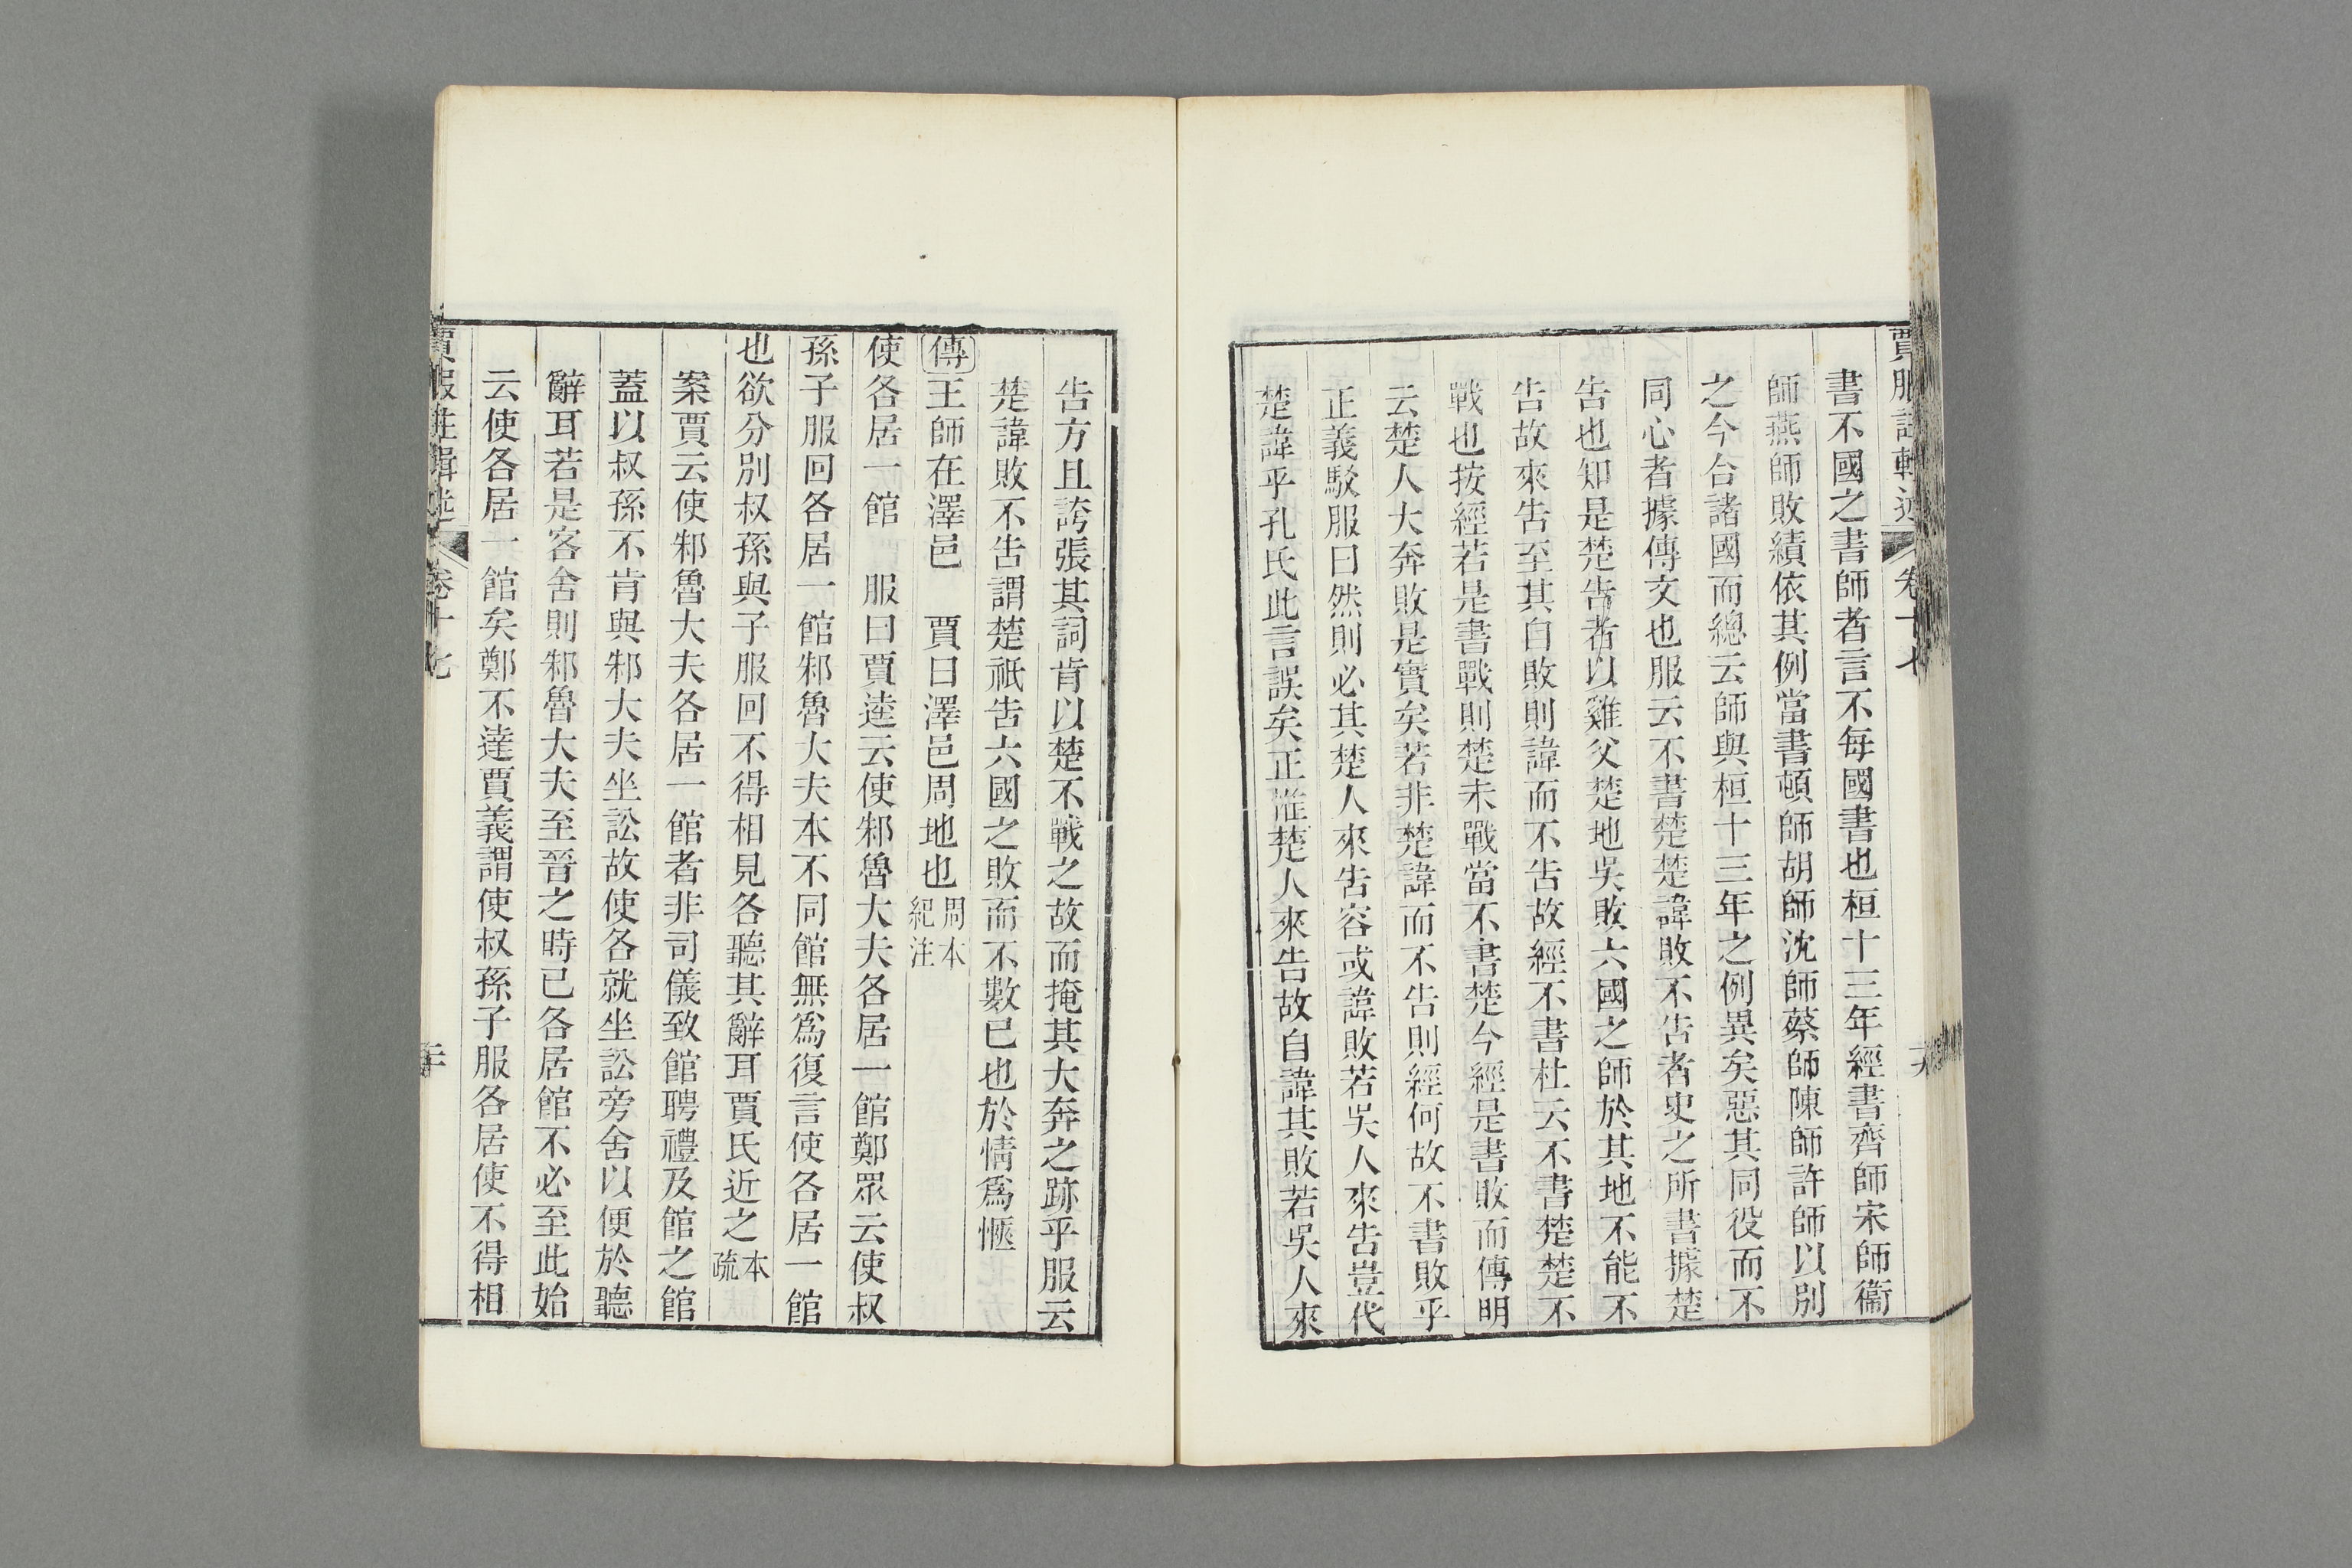 賈服註輯述 卷十七
書不國之書師者言不每國書也桓十三年經書齊師宋師衞
師燕師敗績依其例當書頓師胡師沈師蔡師陳師許師以別
之今合諸國而總云師與桓十三年之例異矣惡其同役而不
同心者據傳文也服云不書楚楚諱敗不告者史之所書據楚
告也知是楚告者以雞父楚地吳敗六國之師於其地不能不
告故來告至其自敗則諱而不告故經不書杜云不書楚楚不
戰也按經若是書戰則楚未戰當不書楚今經是書敗而傳明
云楚人大奔敗是實矣若非楚諱而不告則經何故不書敗乎
正義駁服曰然則必其楚人來告容或諱敗若吳人來告豈代
楚諱乎孔氏此言誤矣正惟楚人來告故自諱其敗若吳人來
告方且誇張其詞肯以楚不戰之故而掩其大奔之跡乎服云
楚諱敗不告謂楚祇告六國之敗而不數已也於情爲愜
傳王師在澤邑 賈曰澤邑周地也周本紀注
使各居一館 服曰賈逵云使邾魯大夫各居一館鄭眾云使叔
孫子服回各居一館邾魯大夫本不同館無爲復言使各居一館
也欲分別叔孫與子服回不得相見各聽其辭耳賈氏近之本疏
案賈云使邾魯大夫各居一館者非司儀致館聘禮及館之館
蓋以叔孫不肯與邾大夫坐訟故使各就坐訟旁舍以便於聽
辭耳若是客舍則邾魯大夫至晉之時已各居館不必至此始
云使各居一館矣鄭不達賈義謂使叔孫子服各居使不得相
賈服註輯述 卷十七 二十